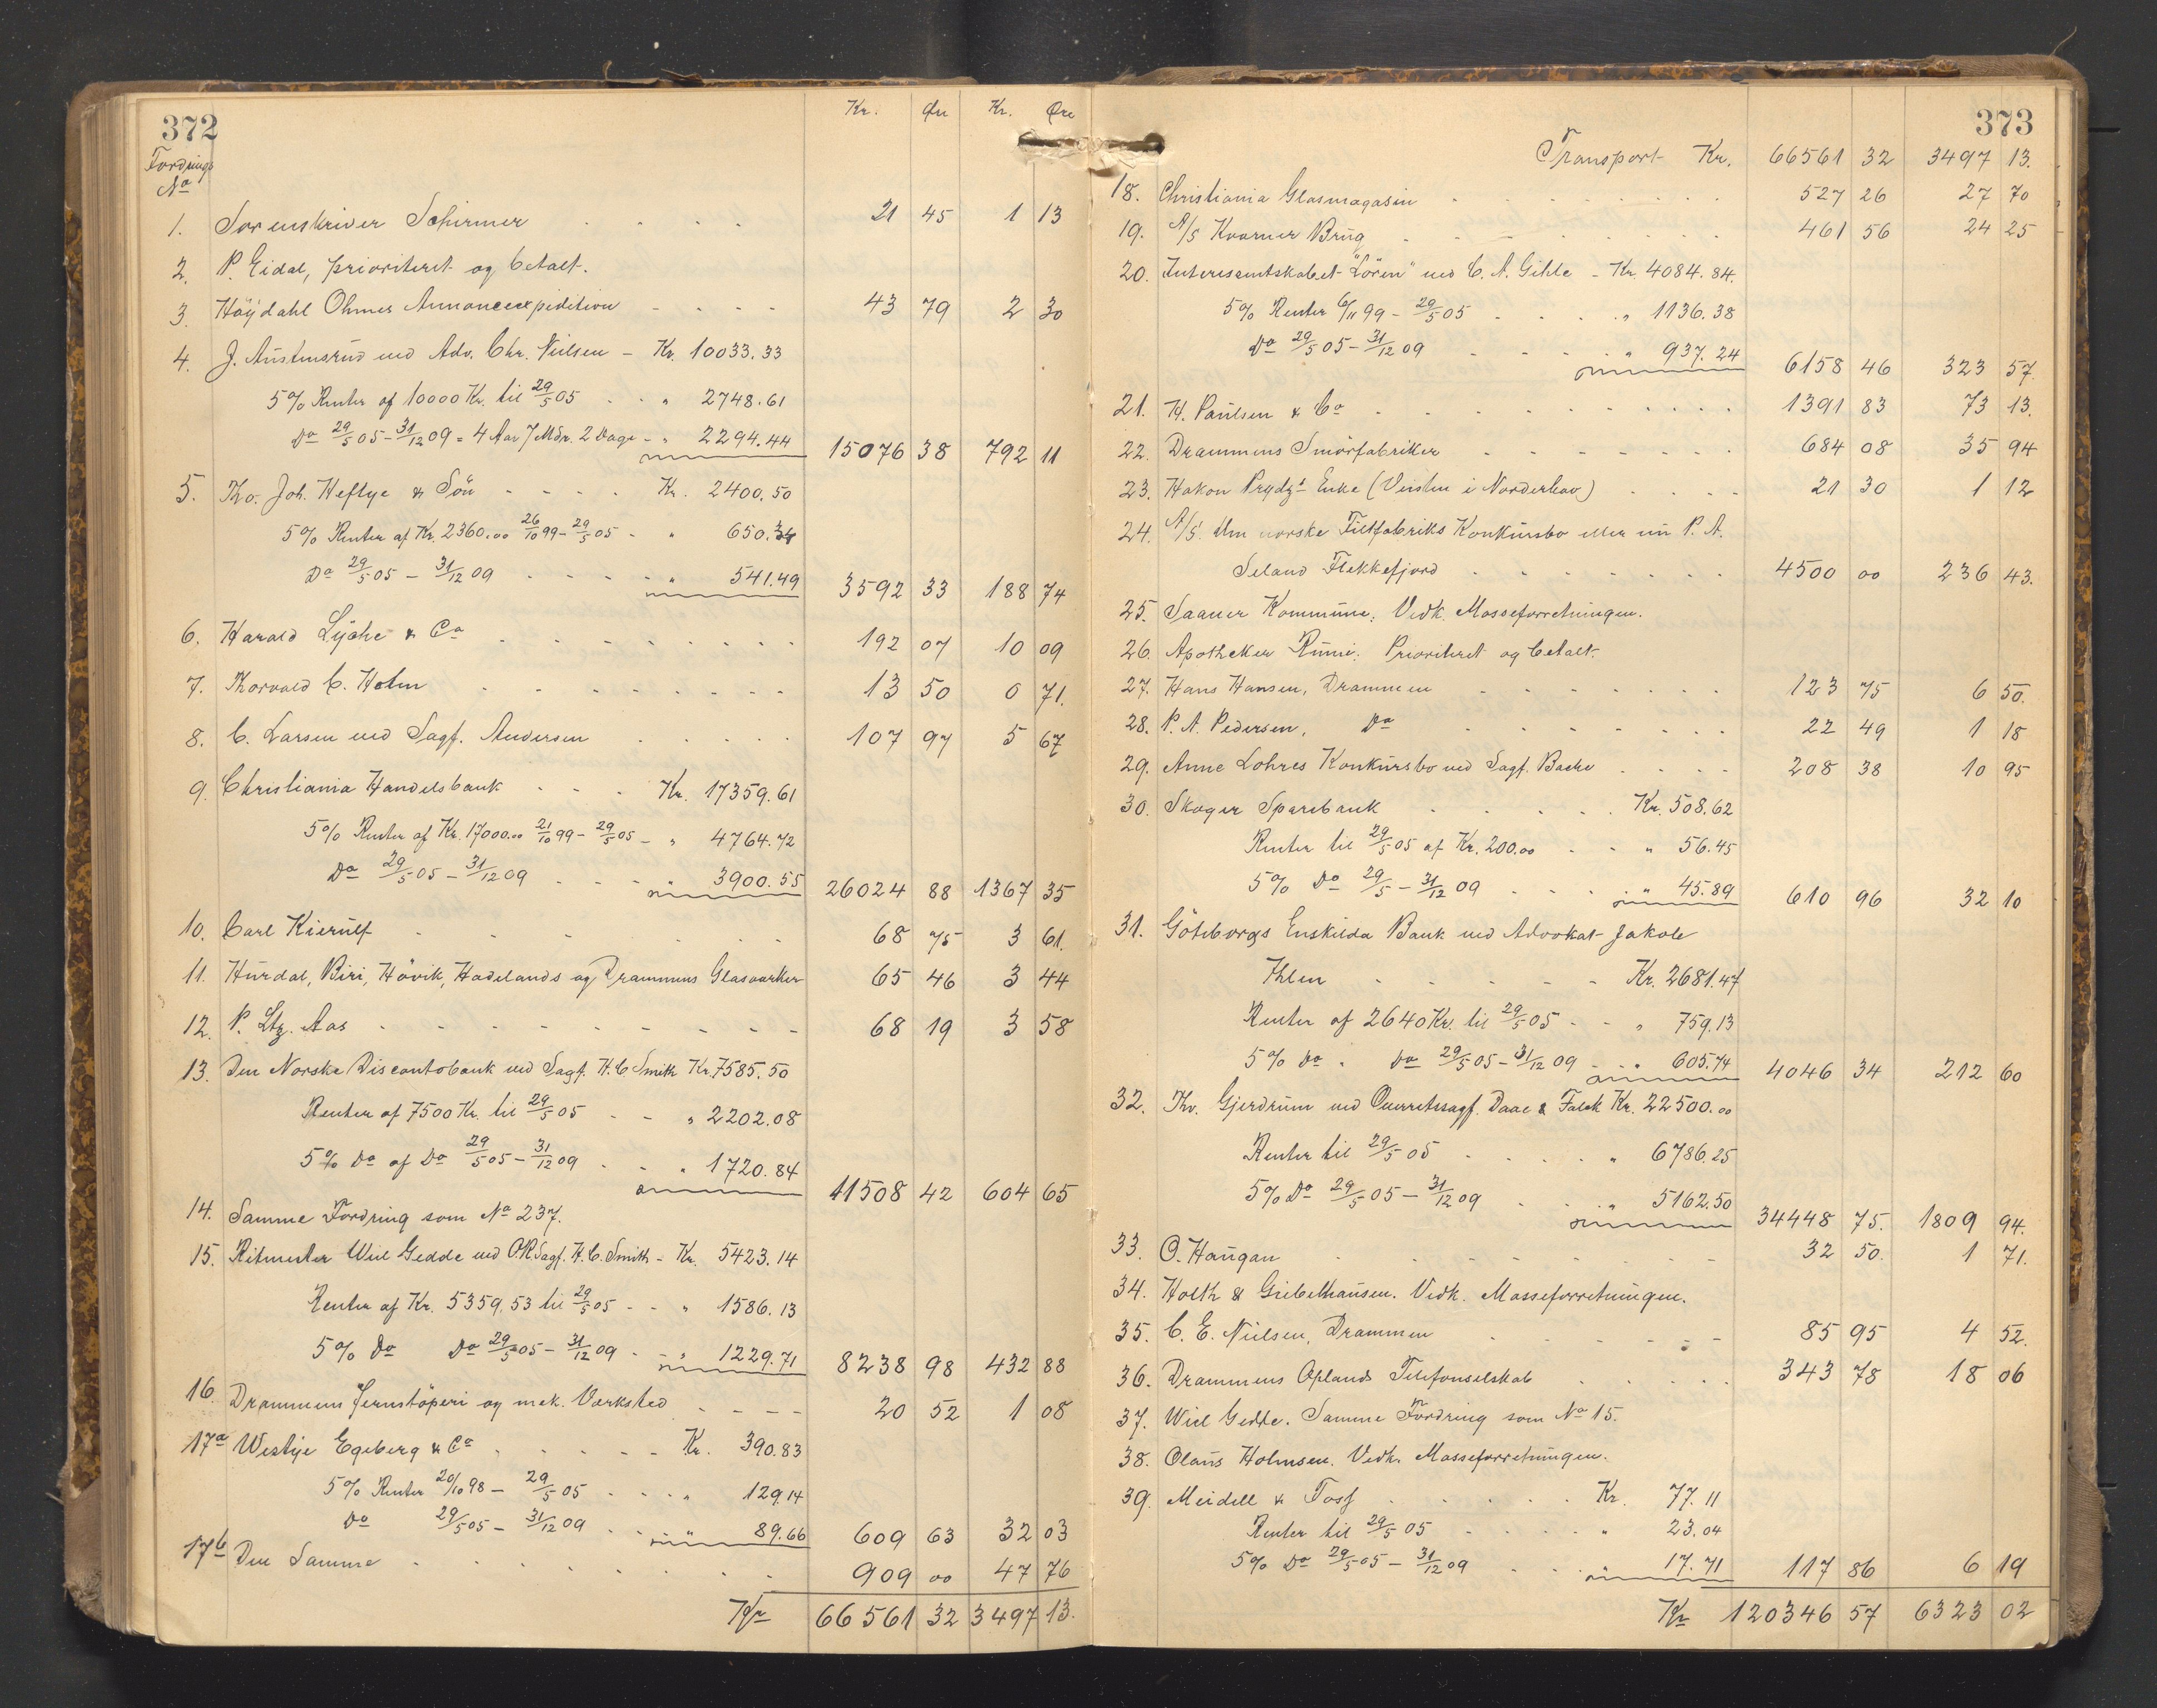 372
Kr. Øre Kr. Øre
Fordrings
No
1. Sorenskriver Schirmer 21 45 1 13
2. P. Eidal, prioriteret og betalt.
3. Høydahl Ohmes Annonceexpedition 43 79 2 30
4. J. Austensrud ved Adv. Chr. Nielsen - Kr. 10033.33
5% Renter af 10000 Kr. til 29/5 05 " 2748.61
Do 29/5 05 - 31/12 09 = 4 Aar 7 Mdr. 2 Dage - " 2294.44 15076 38 792 11
5. Tho. Joh. Heftye & Sön Kr. 2400.50
5% Renter af Kr. 2360.00 26/10 99 - 29/5 05 - " 650.34
Do 29/5 05 - 31/12 09 " 541.49 3592 33 188 74
6. Harald Lyche & Co 192 07 10 09
7. Thorvald C. Holm 13 50 0 71.
8. C. Larsen ved Sagf. Andersen 107 97 5 67
9. Christiania Handelsbank Kr. 17359.61
5% Renter af Kr. 17000.00 21/10 99 - 29/5 05 - " 4764.72
Do 29/5 05 - 31/12 09 " 3900.55 26024 88 1367 35
10. Carl Kierulf 68 75 3 61.
11. Hurdal, Biri, Hövik, Hadelands og Drammens Glasværker 65 46 3 44
12. P. Ltz. Aas 68 19 3 58
13. Den Norske Discontobank ved Sagf. H. C. Smith Kr. 7585.50
Renter af 7500 Kr. til 29/5 05 " 2202.08
5% Do af Do 29/5 05 - 31/12 09 " 1720.84 11508 42 604 65
14. Samme Fordring som No 237.
15. Ritmester Wiel Gedde ved O.R.Sagf. H. C. Smith - Kr. 5423.14
Renter af Kr. 5359.53 til 29/5 05 " 1586.13
5% Do Do 29/5 05 - 31/12 09 - " 1229.71 8238 98 432 88
16. Drammens Jernstöperi og mek. Værksted 20 52 1 08
17a Westye Egeberg & Co Kr. 390.83
5% Renter 20/10 98 - 29/5 05 " 129.14
Do 29/5 05 - 31/12 09 " 89.66 609 63 32 03
17b Den Samme 909 00 47 76
Kr 66561 32 3497 13.
373
Transport Kr. 66561 32 3497 13.
18. Christiania Glasmagasin 527 26 27 70
19. A/S Kværner Brug 461 56 24 25
20. Interessentskabet "Lören" ved C. A. Gihle - Kr. 4084.84.
5% Renter 6/11 99 - 29/5 05 " 1136.38
Do 29/5 05 - 31/12 09 " 937.24 6158 46 323 57.
21. H. Paulsen & Co 1391 83 73 13.
22. Drammens Smörfabriker 684 08 35 94
23. Hakon Prydz's Enke (Veisten i Norderhov) 21 30 1 12
24. A/S. Den norske Filtfabriks Konkursbo eller nu P. A.
Seland Flekkefjord 4500 00 236 43.
25. Saaner Kommune. Vedk. Masseforretningen.
26. Apotheker Runi. Prioriteret og betalt.
27. Hans Hansen, Drammen 123 75 6 50.
28. P. A. Pedersen, Do 22 49 1 18
29. Anne Lohres Konkursbo ved Sagf. Bache 208 38 10 95
30. Skoger Sparebank Kr. 508.62
Renter til 29/5 05 af Kr. 200.00 - " 56.45
5% Do 29/5 - 31/12 09 " 45.89 610 96 32 10
31. Göteborgs Enskilda Bank ved Advokat Jakob
Ihlen Kr. 2681.47
Renter af 2640 Kr. til 29/5 05 - " 759.13
5% Do Do 29/5 05 - 31/12 09 " 605.74 4046 34 212 60
32. Thv. Gjerdrum ved Overretssagf. Daae & Falck Kr. 22500.00
Renter til 29/5 05 " 6786.25
5% Do 29/5 05 - 31/12 09 " 5162.50 34448 75. 1809 94.
33. O. Haugan 32 50. 1 71.
34. Holth & Giebelhausen. Vedk. Masseforretningen.
35. C. E. Nielsen, Drammen 85 95 4 52.
36. Drammens Oplands Telefonselskab 343 78 18 06
37. Wiel Gedde. Samme Fordring som No 15.
38. Olaus Holmsen. Vedk. Masseforretningen.
39. Meidell & Tosf Kr. 77.11
Renter til 29/5 05 " 23.04
5% Do 29/5 05 - 31/12 09 " 17.71 117 86 6 19
Kr 120346 57 6323 02